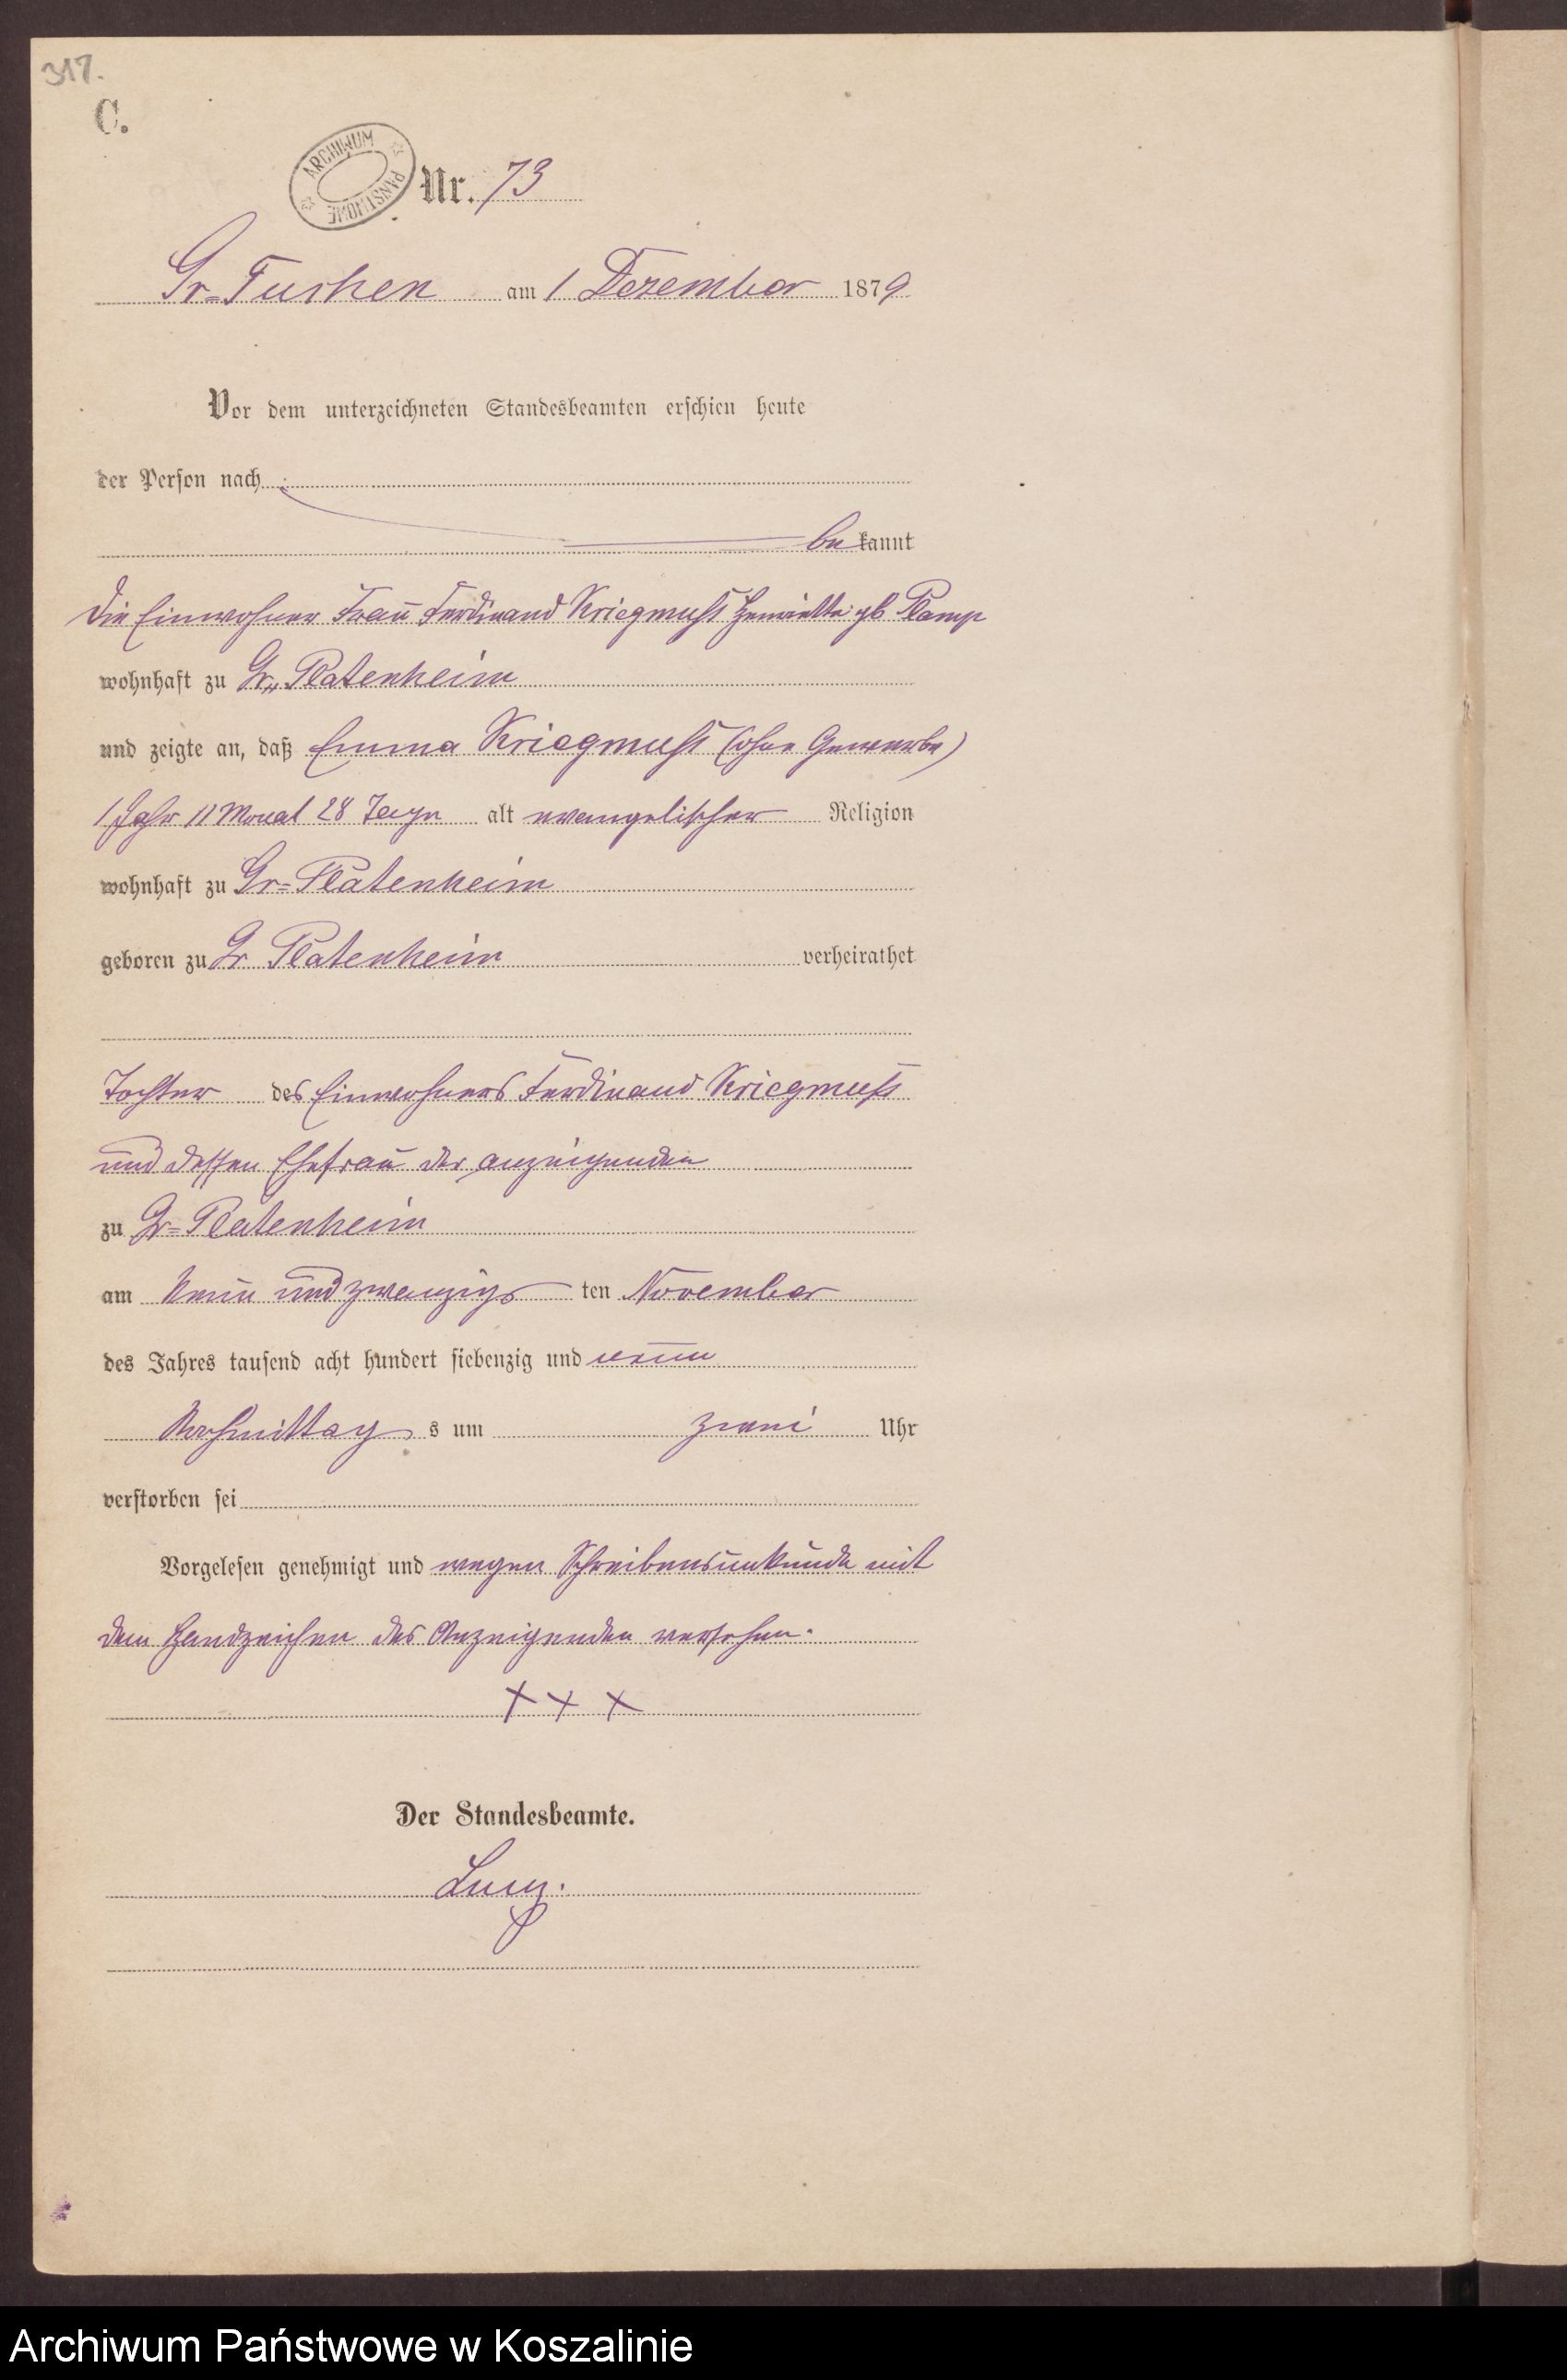 317.
C.
ARCHIWUM PAŃSTWOWE
Nr. 73
Gr=Tuchen am 1 Dezember 1879
Vor dem unterzeichneten Standesbeamten erschien heute
der Person nach
bekannt
die Einwohner Frau Ferdinand Kriegmuß Henriette gb Plamp
wohnhaft zu Gr„ Platenheim
und zeigte an, daß Emma Kriegmuß (ohne Gewerbe)
1 Jahr 11 Monat 28 Tage alt evangelischer Religion
wohnhaft zu Gr=Platenheim
geboren zu Gr Platenheim verheirathet
Tochter des Einwohners Ferdinand Kriegmuß
und dessen Ehefrau der anzeigenden
zu Gr=Platenheim
am Neun und zwanzigs ten November
des Jahres tausend acht hundert siebenzig und neun
Nachmittag s um zwei Uhr
verstorben sei
Vorgelesen genehmigt und wegen Schreibensunkunde mit
dem Handzeichen des Anzeigenden versehen.
+ + +
Der Standesbeamte.
Archiwum Państwowe w Koszalinie